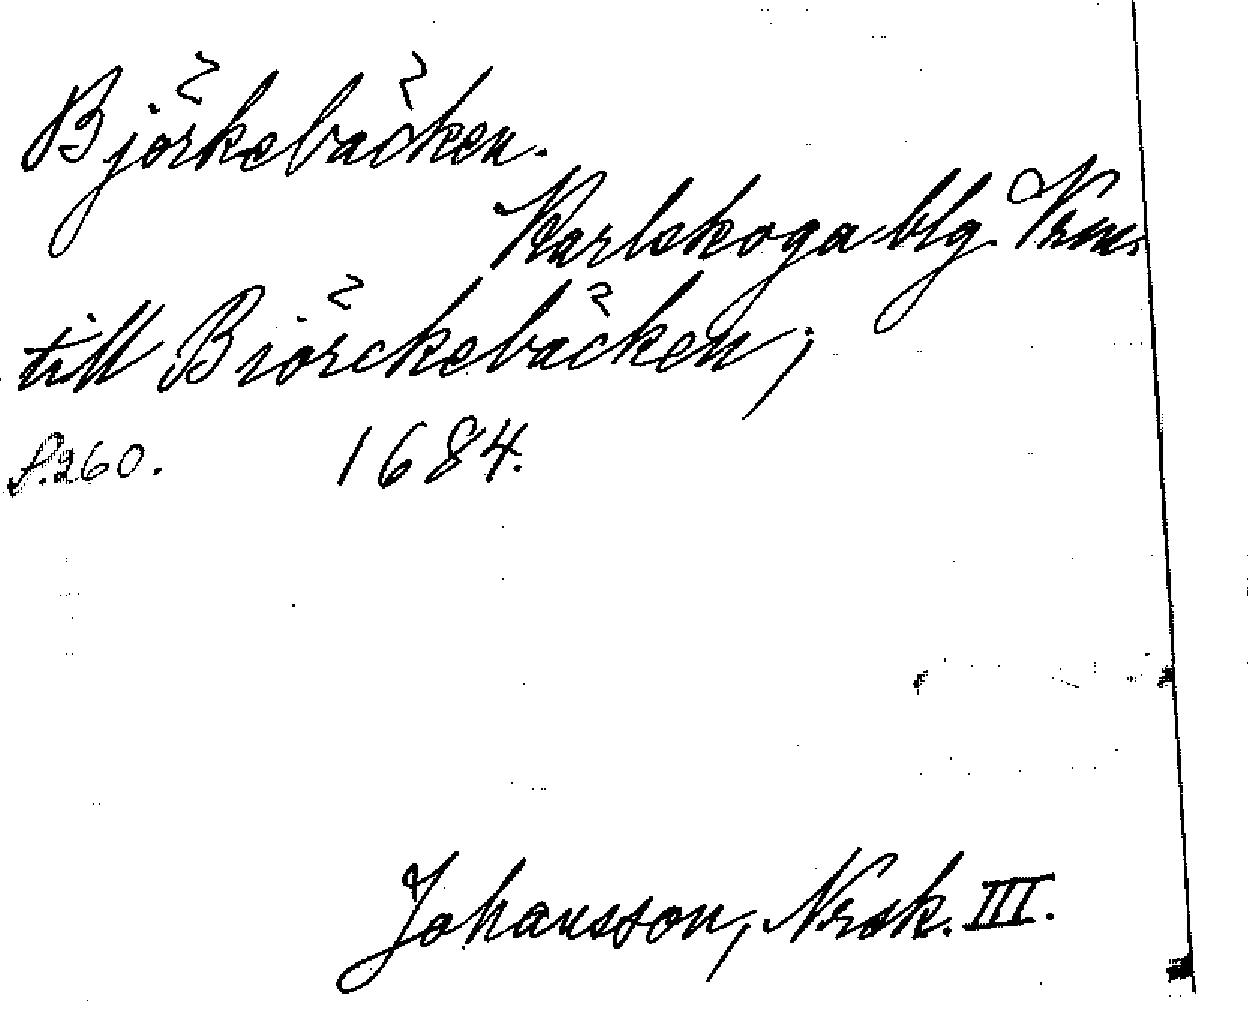 Björkebäcken.
Karlskoga blg. Vrm.
till Biörckebäcken,
S. 260. 1684.
Johansson, Nrsk. III.